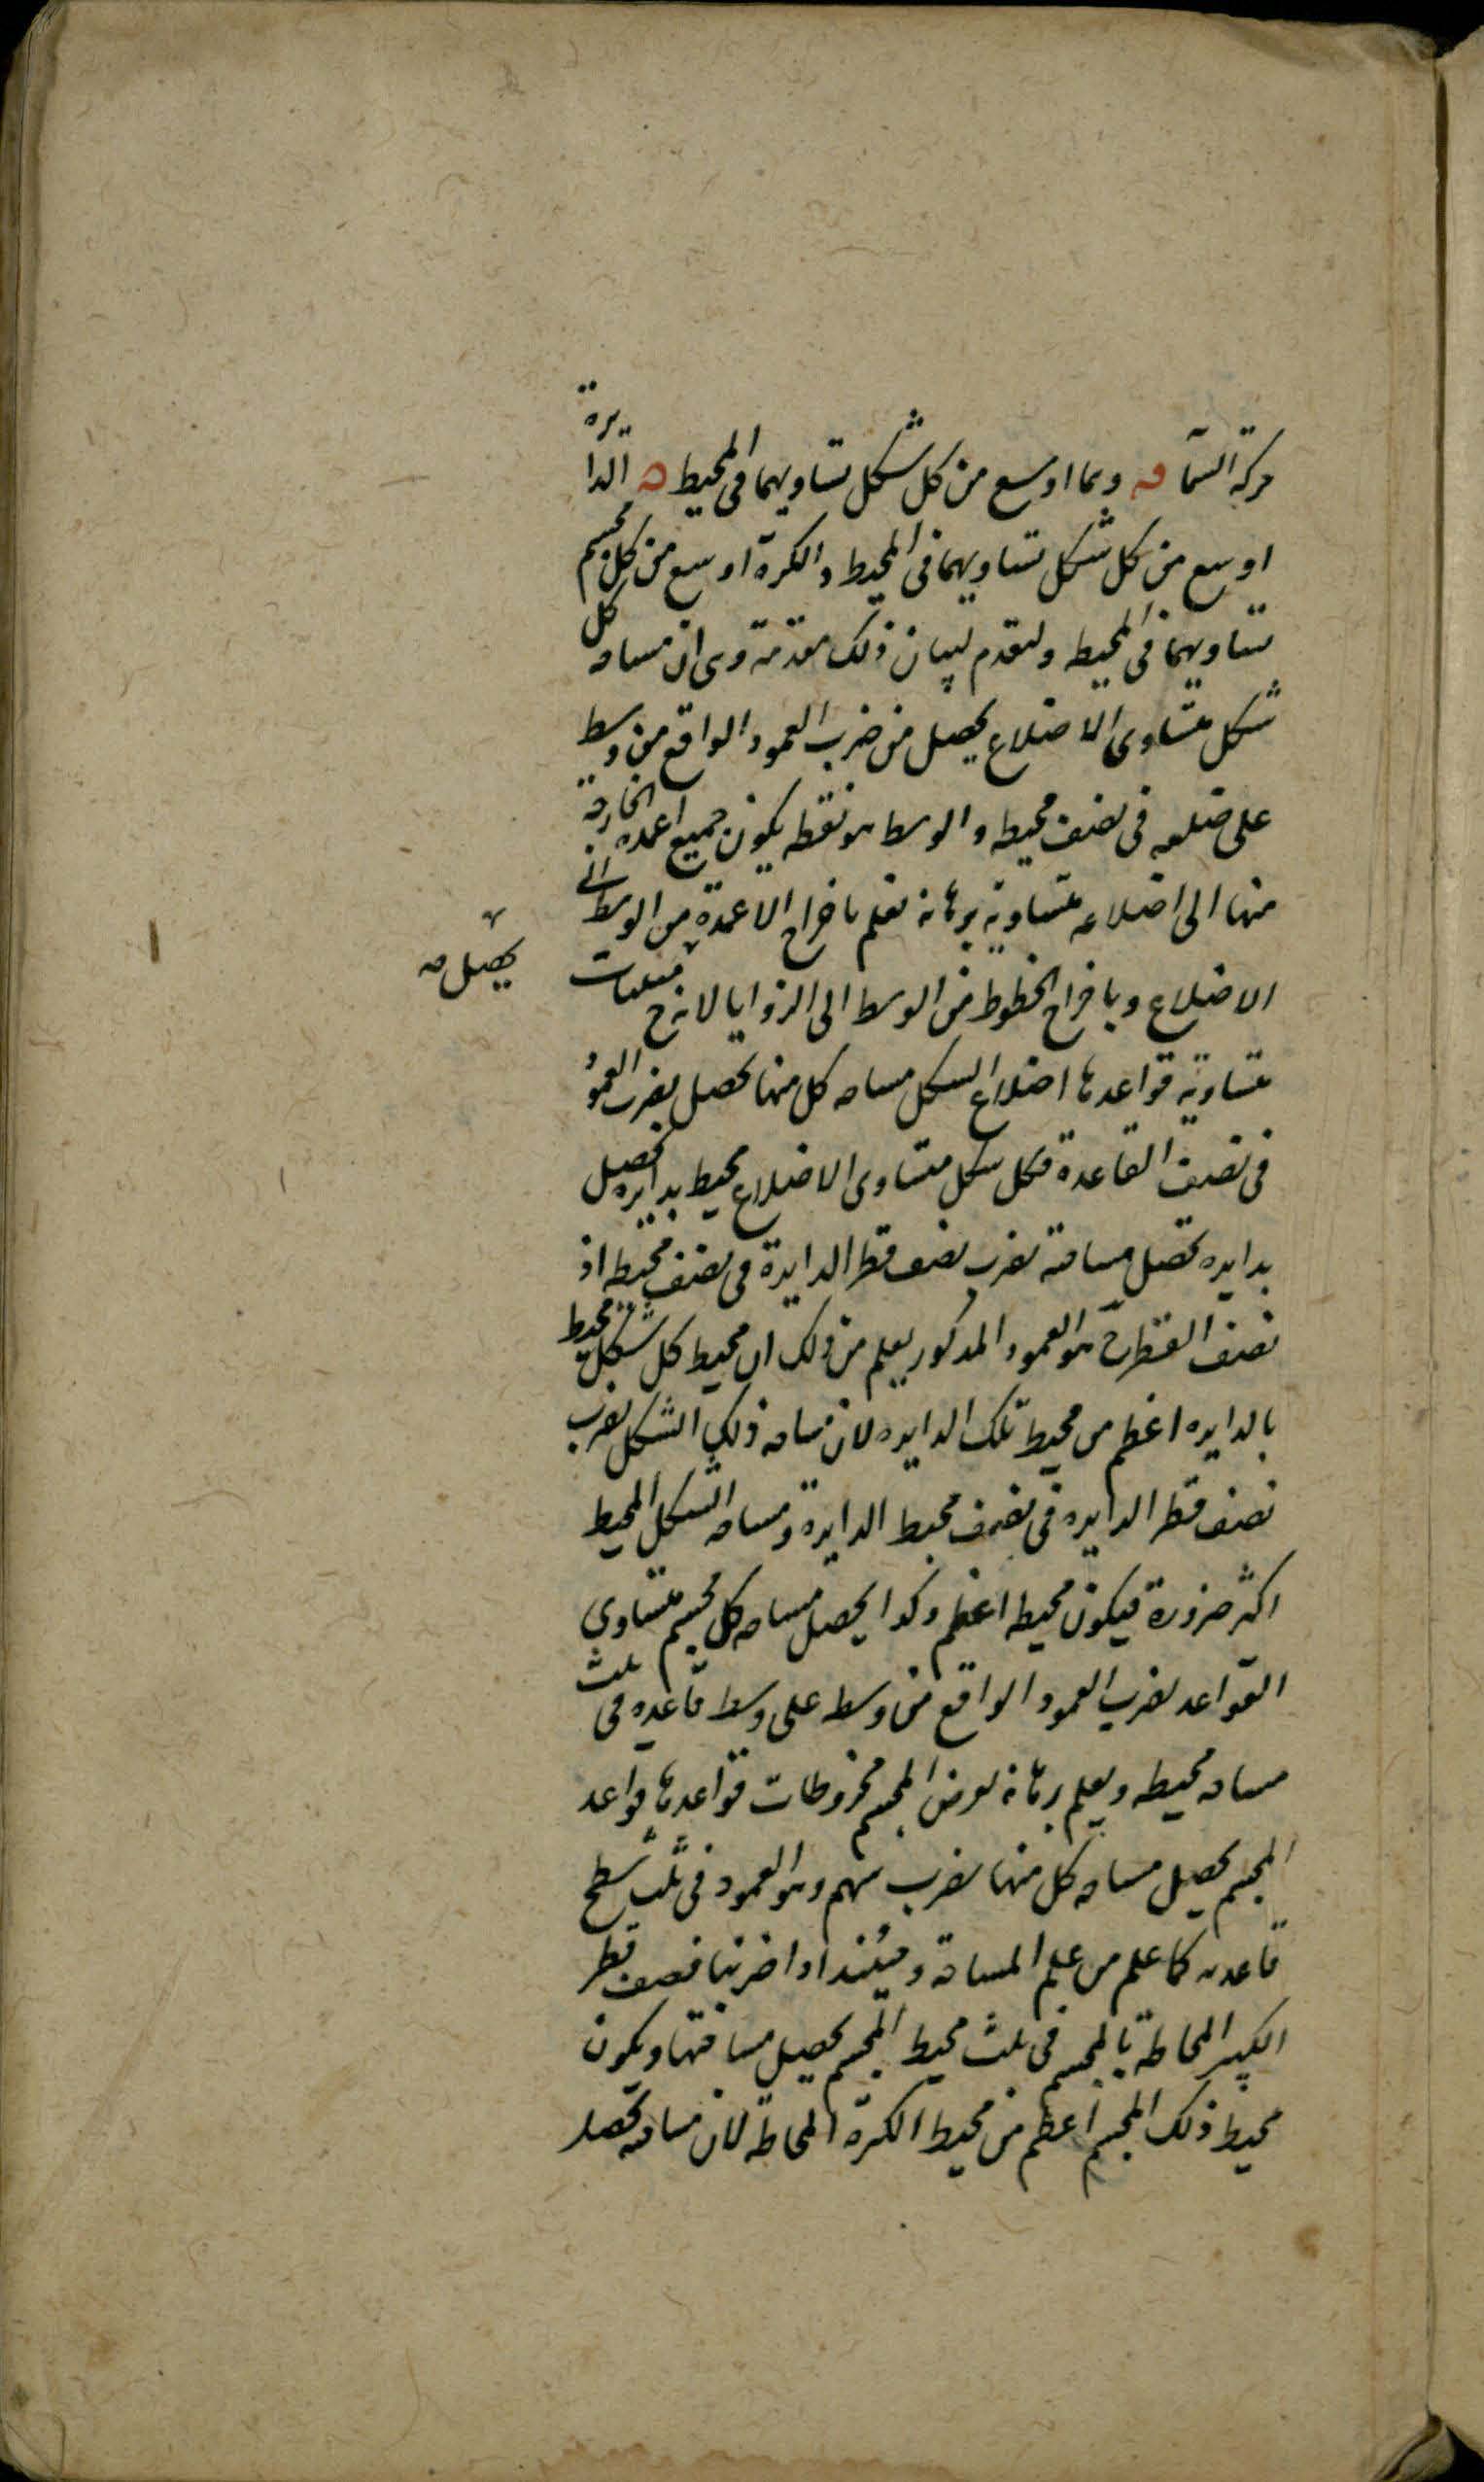 حركة السما وهما اوسع من كل شكل تساويهما فى المحيط الدايرة
اوسع من كل شكل تساويهما فى المحيط والكرة اوسع من كل مجسم
تساويهما فى المحيط ولنقدم لبيان ذلك مقدمة وهى ان مساحه كل
شكل متساوى الاضلاع يحصل من ضرب العمود الواقع من وسط
على ضلعه فى نصف محيطه والوسط هو نقطه يكون جميع اعمده الخارجة
منها الى اضلاعه متساوية برهانه نعلم باخراج الاعمدة من الوسط الى
الاضلاع وباخراج الخطوط من الوسط الى الزوايا لانه ح مثلثات
يحصل صه
متساوية قواعدها اضلاع الشكل مساحه كل منها تحصل بضرب العمود
فى نصف القاعدة فكل شكل متساوى الاضلاع محيط بدايره تحصل
بدايره تحصل مساحته بضرب نصف قطر الدايرة فى نصف محيطه اذ
نصف القطر ح هو العمود المذكور يعلم من ذلك ان محيط كل شكل محيط
بالدايره اعظم من محيط تلك الدايره لان مساحه ذلك الشكل بضرب
نصف قطر الدايره فى نصف محيط الدايرة ومساحه الشكل المحيط
اكثر ضرورة فيكون محيطه اعظم وكذا يحصل مساحه كل مجسم متساوى
القواعد بضرب العمود الواقع من وسطه على وسط قاعده فى ثلث
مساحه محيطه ويعلم برهانه بفرض المجسم مخروطات قواعدها قواعد
المجسم يحصل مساحه كل منها بضرب سهم وهو العمود فى ثلث سطح
قاعدته كما علم من علم المساحة وحينئذ اذا ضربنا نصف قطر
الكبير المحاطة بالمجسم فى ثلث محيط المجسم يحصل مساحتها ويكون
محيط ذلك المجسم اعظم من محيط الكرة المحاطة لان مساحته تحصل